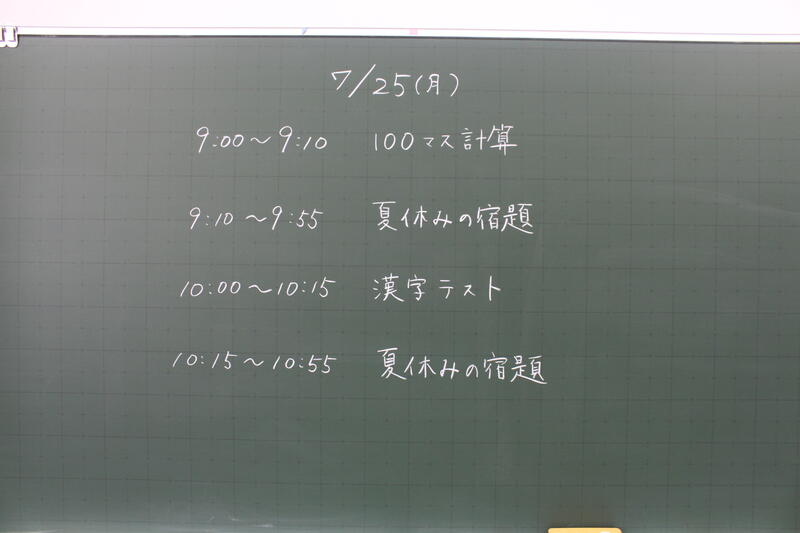 7/25(月)
9:00〜9:10 100マス計算
9:10〜9:55 夏休みの宿題
10:00〜10:15 漢字テスト
10:15〜10:55 夏休みの宿題